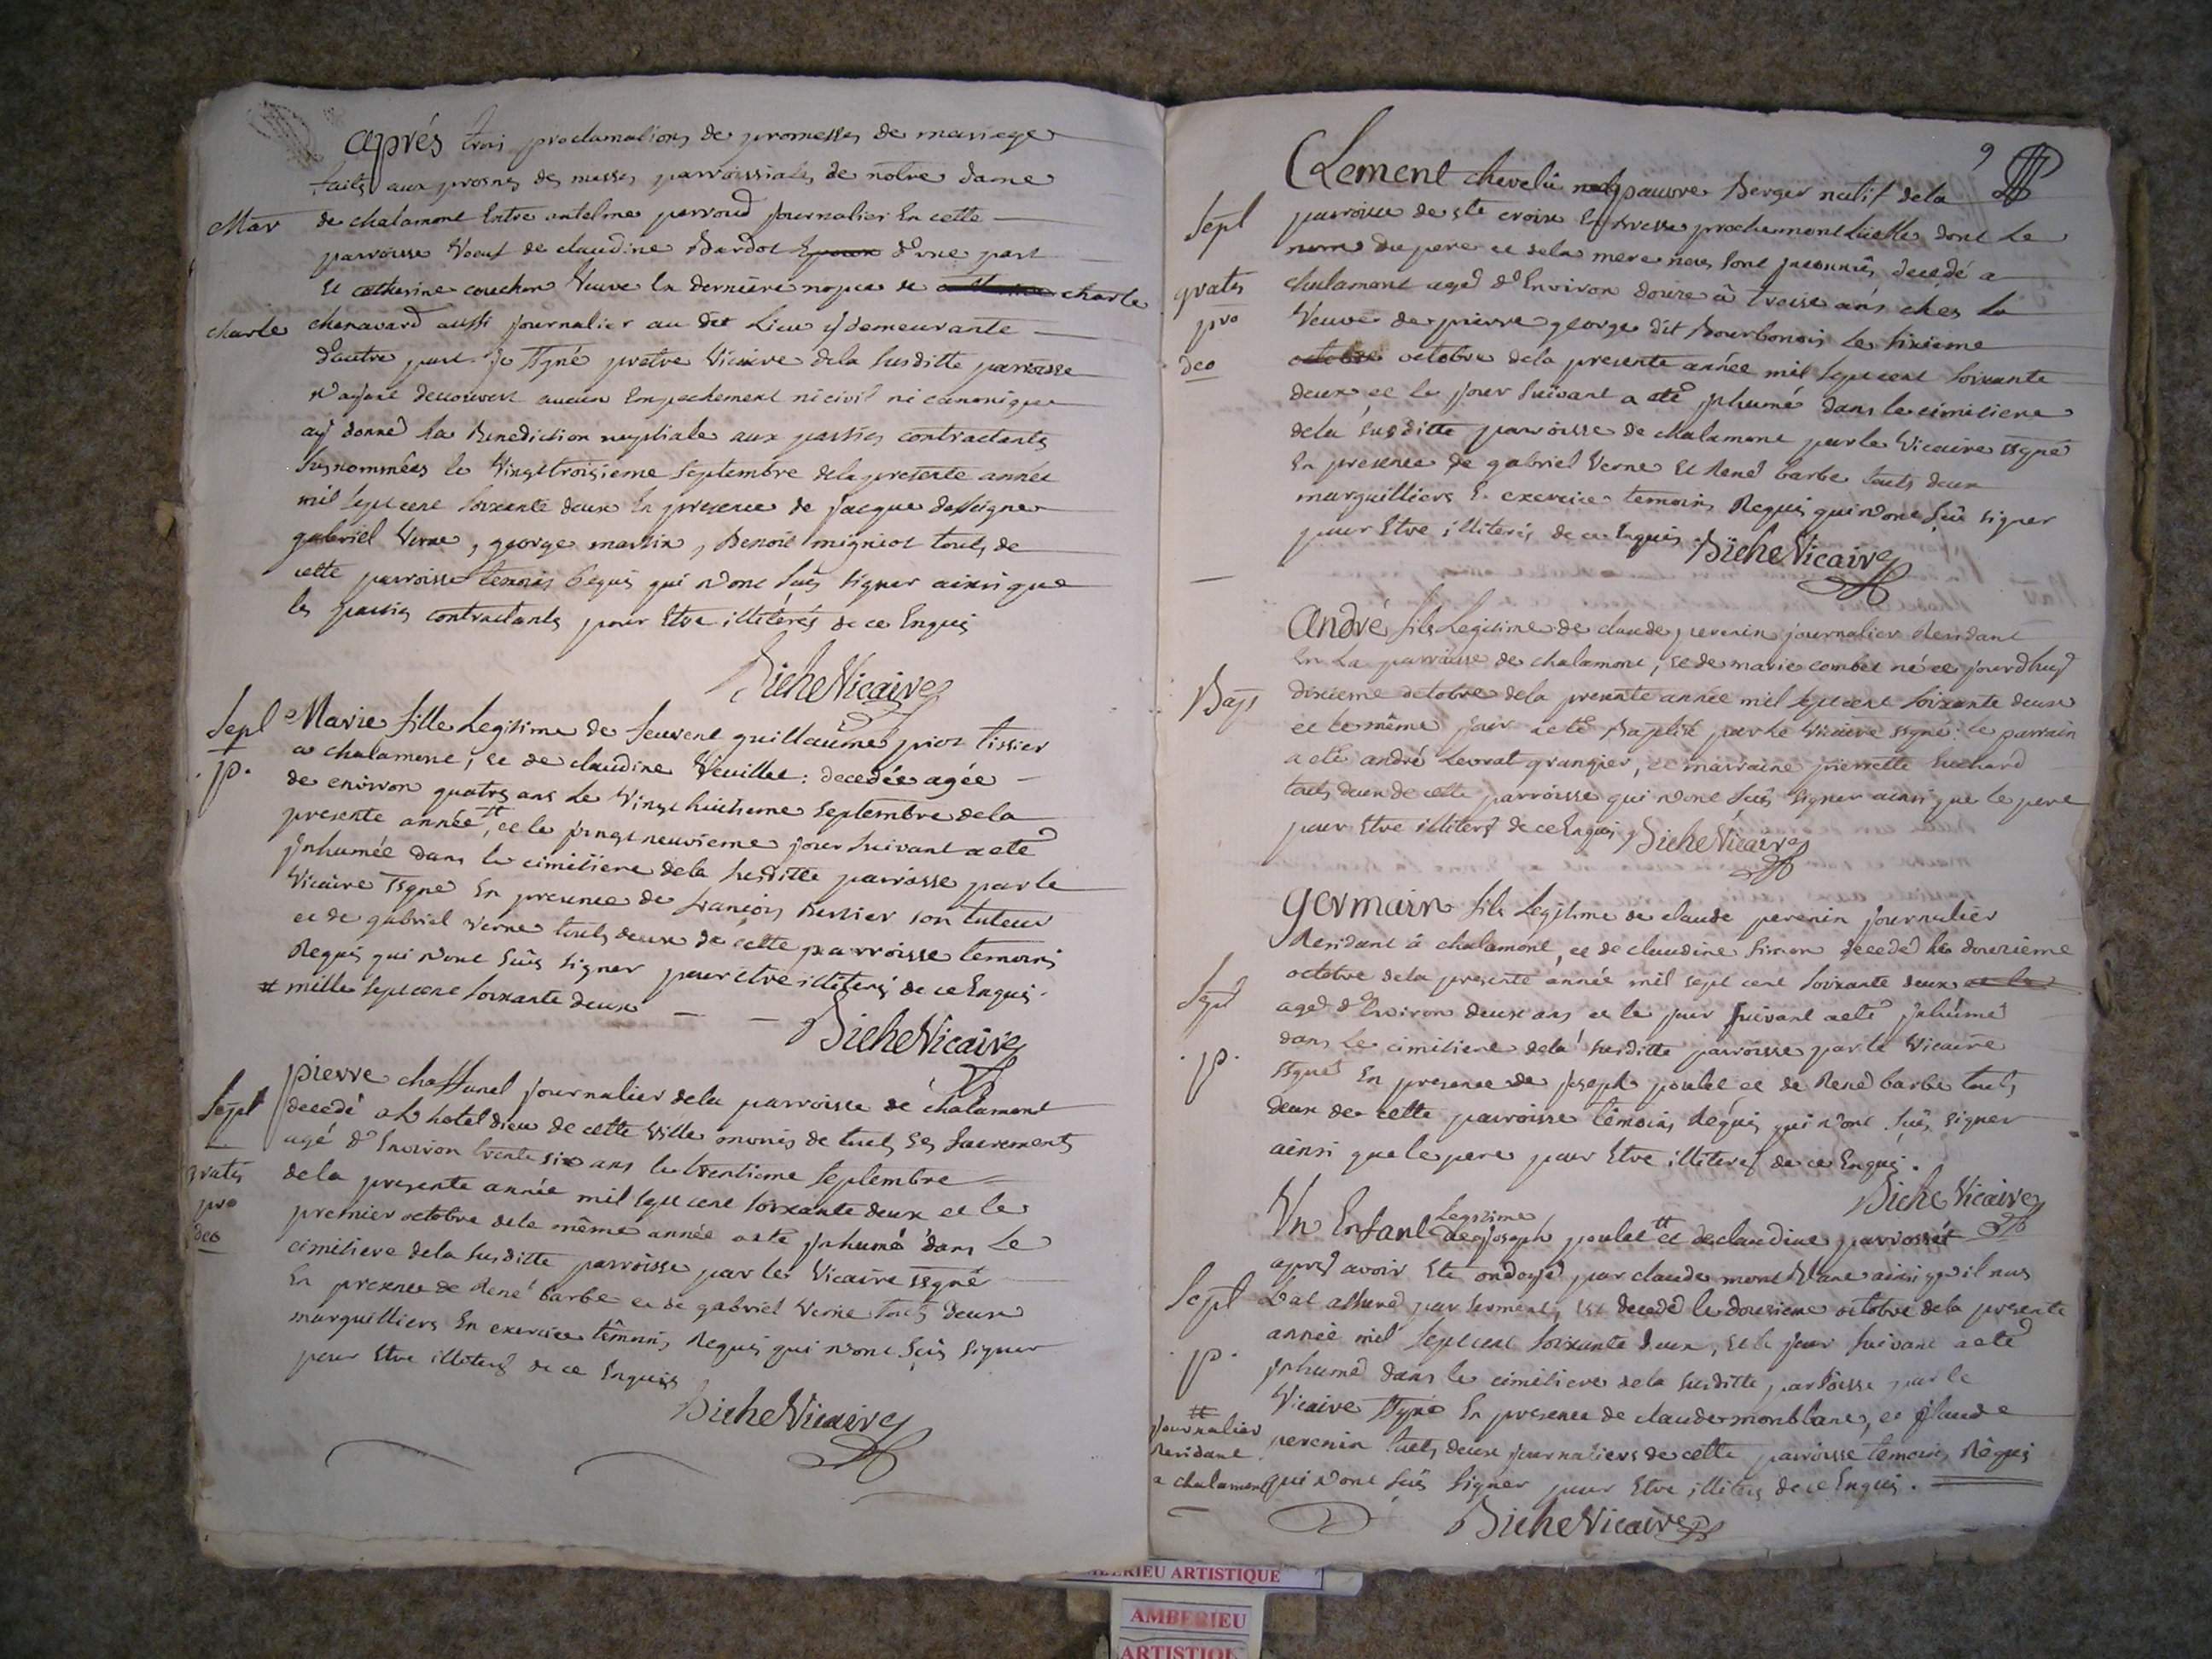 après trois proclamations de promesses de mariage
faites aux prosnes des messes parroissiales de notre dame
Mar
de chalamont Entre antelme perroud journalier En cette
parroisse Veuf de claudine Bardot d'une part
Et catherine couchon Veuve En derniere nopce de charle
charle
chenavard aussi journalier au dit Lieu y demeurante
d'autre part je ssigné pretre Vicaire dela susditte parroisse
n'ayant decouvert aucun Empechement ni civil ni canonique
ay donné la Benediction nuptiale aux parties contractants
susnommées le Vingt troisieme septembre dela presente année
mil sept cent soixante deux En presence de jacque
gabriel Verne, george martin, Benoit migniot touts de
cette parroisse temoins Requis qui n'ont sus signer ainsi que
les parties contractants pour Etre illiterés de ce Enquis
Biche Vicaire
Sept
p.
Marie fille Legitime de feu vent guillaume piot tissier
a chalamont, et de claudine Veuillet: decedée agée
de environ quatre ans Le Vingt huitieme septembre dela
presente année, # et le vingt neuvieme jour suivant a eté
jnhumée dans le cimitiere dela susditte parroisse par le
Vicaire ssigné En presence de françois Bernier son tuteur
et de gabriel Verne touts deux de cette parroisse temoins
Requis qui n'ont sus signer pour etre illiterés de ce Enquis.
# mille sept cent soixante deux
Biche Vicaire
Sept
gratis
pro
deo
pierre chaffanel journalier dela parroisse de chalamont
decedé a L hotel dieu de cette Ville munis de touts ses sacrements
agé d'Environ trente six ans le trentieme septembre
de la presente année mil sept cent soixante deux et le
premier octobre dela même année a eté jnhumé dans Le
cimitiere dela susditte parroisse par le Vicaire ssigné
En presence de René barbe et de gabriel Verne touts deux
marguilliers En exercice temoins Requis qui n'ont sus signer
pour Etre illiterés de ce Enquis
Biche Vicaire
9
Sept
gratis
pro
deo
Clement chevelu pauvre Berger natif dela
parroisse de ste croix En Bresse prochainement dont Le
nom du pere et dela mere nous sont jnconnus, decedé a
chalamont agé d'Environ douze à treize ans ches La
Veuve de pierre george dit Bourbonois Le sixieme
octobre dela presente année mil sept cent soixante
deux et le jour suivant a eté jnhumé dans le cimitiere
dela susditte parroisse de chalamont par le Vicaire ssigné
En presence de gabriel Verne Et René barbe touts deux
marguilliers En exercice temoins Requis qui n'ont sus signer
pour Etre illiterés de ce Enquis Biche Vicaire
Bapt
André fils Legitime de claude perenin journalier Residant
En La parroisse de chalamont, et de marie combet né ce jourdhuy
dixieme octobre dela presente année mil sept cent soixante deux
et le même jour a eté Baptisé par Le Vicaire ssigné: le parrain
a eté andré Levrat grangier, et marraine pierrette suchard
touts deux de cette parroisse qui n'ont sus signer ainsi que le pere
pour Etre illiterés de ce Enquis Biche Vicaire
Sept
p.
germain fils Legitime de claude perenin journalier
Residant à chalamont, et de claudine simon decedé le douzieme
octobre dela presente année mil sept cent soixante deux et le
agé d'Environ deux ans et le jour suivant a eté jnhumé
dans Le cimitiere dela susditte parroisse par le Vicaire
ssigné En presence de joseph poulet et de René barbe touts
deux de cette parroisse temoins Requis qui n'ont sus signer
ainsi que le pere pour Etre illiterés de ce Enquis.
Biche Vicaire
Sept
p.
Un Enfant Legitime de joseph poulet # et de claudine parrosset
apres avoir Eté ondoyé par claude mont Blanc ainsi qu'il nous
L'at assuré par serment, est decedé le douzieme octobre dela presente
année mil sept cent soixante deux, et le jour suivant a eté
jnhumé dans le cimitiere dela susditte parroisse par le
Vicaire ssigné En presence de claude montblanc, et claude
perenin touts deux journaliers de cette parroisse temoins Requis
qui n'ont sus signer pour Etre illiterés de ce Enquis.
# journalier
Residant
a chalamont
Biche Vicaire
AMBERIEU ARTISTIQUE
AMBERIEU
ARTISTIQUE